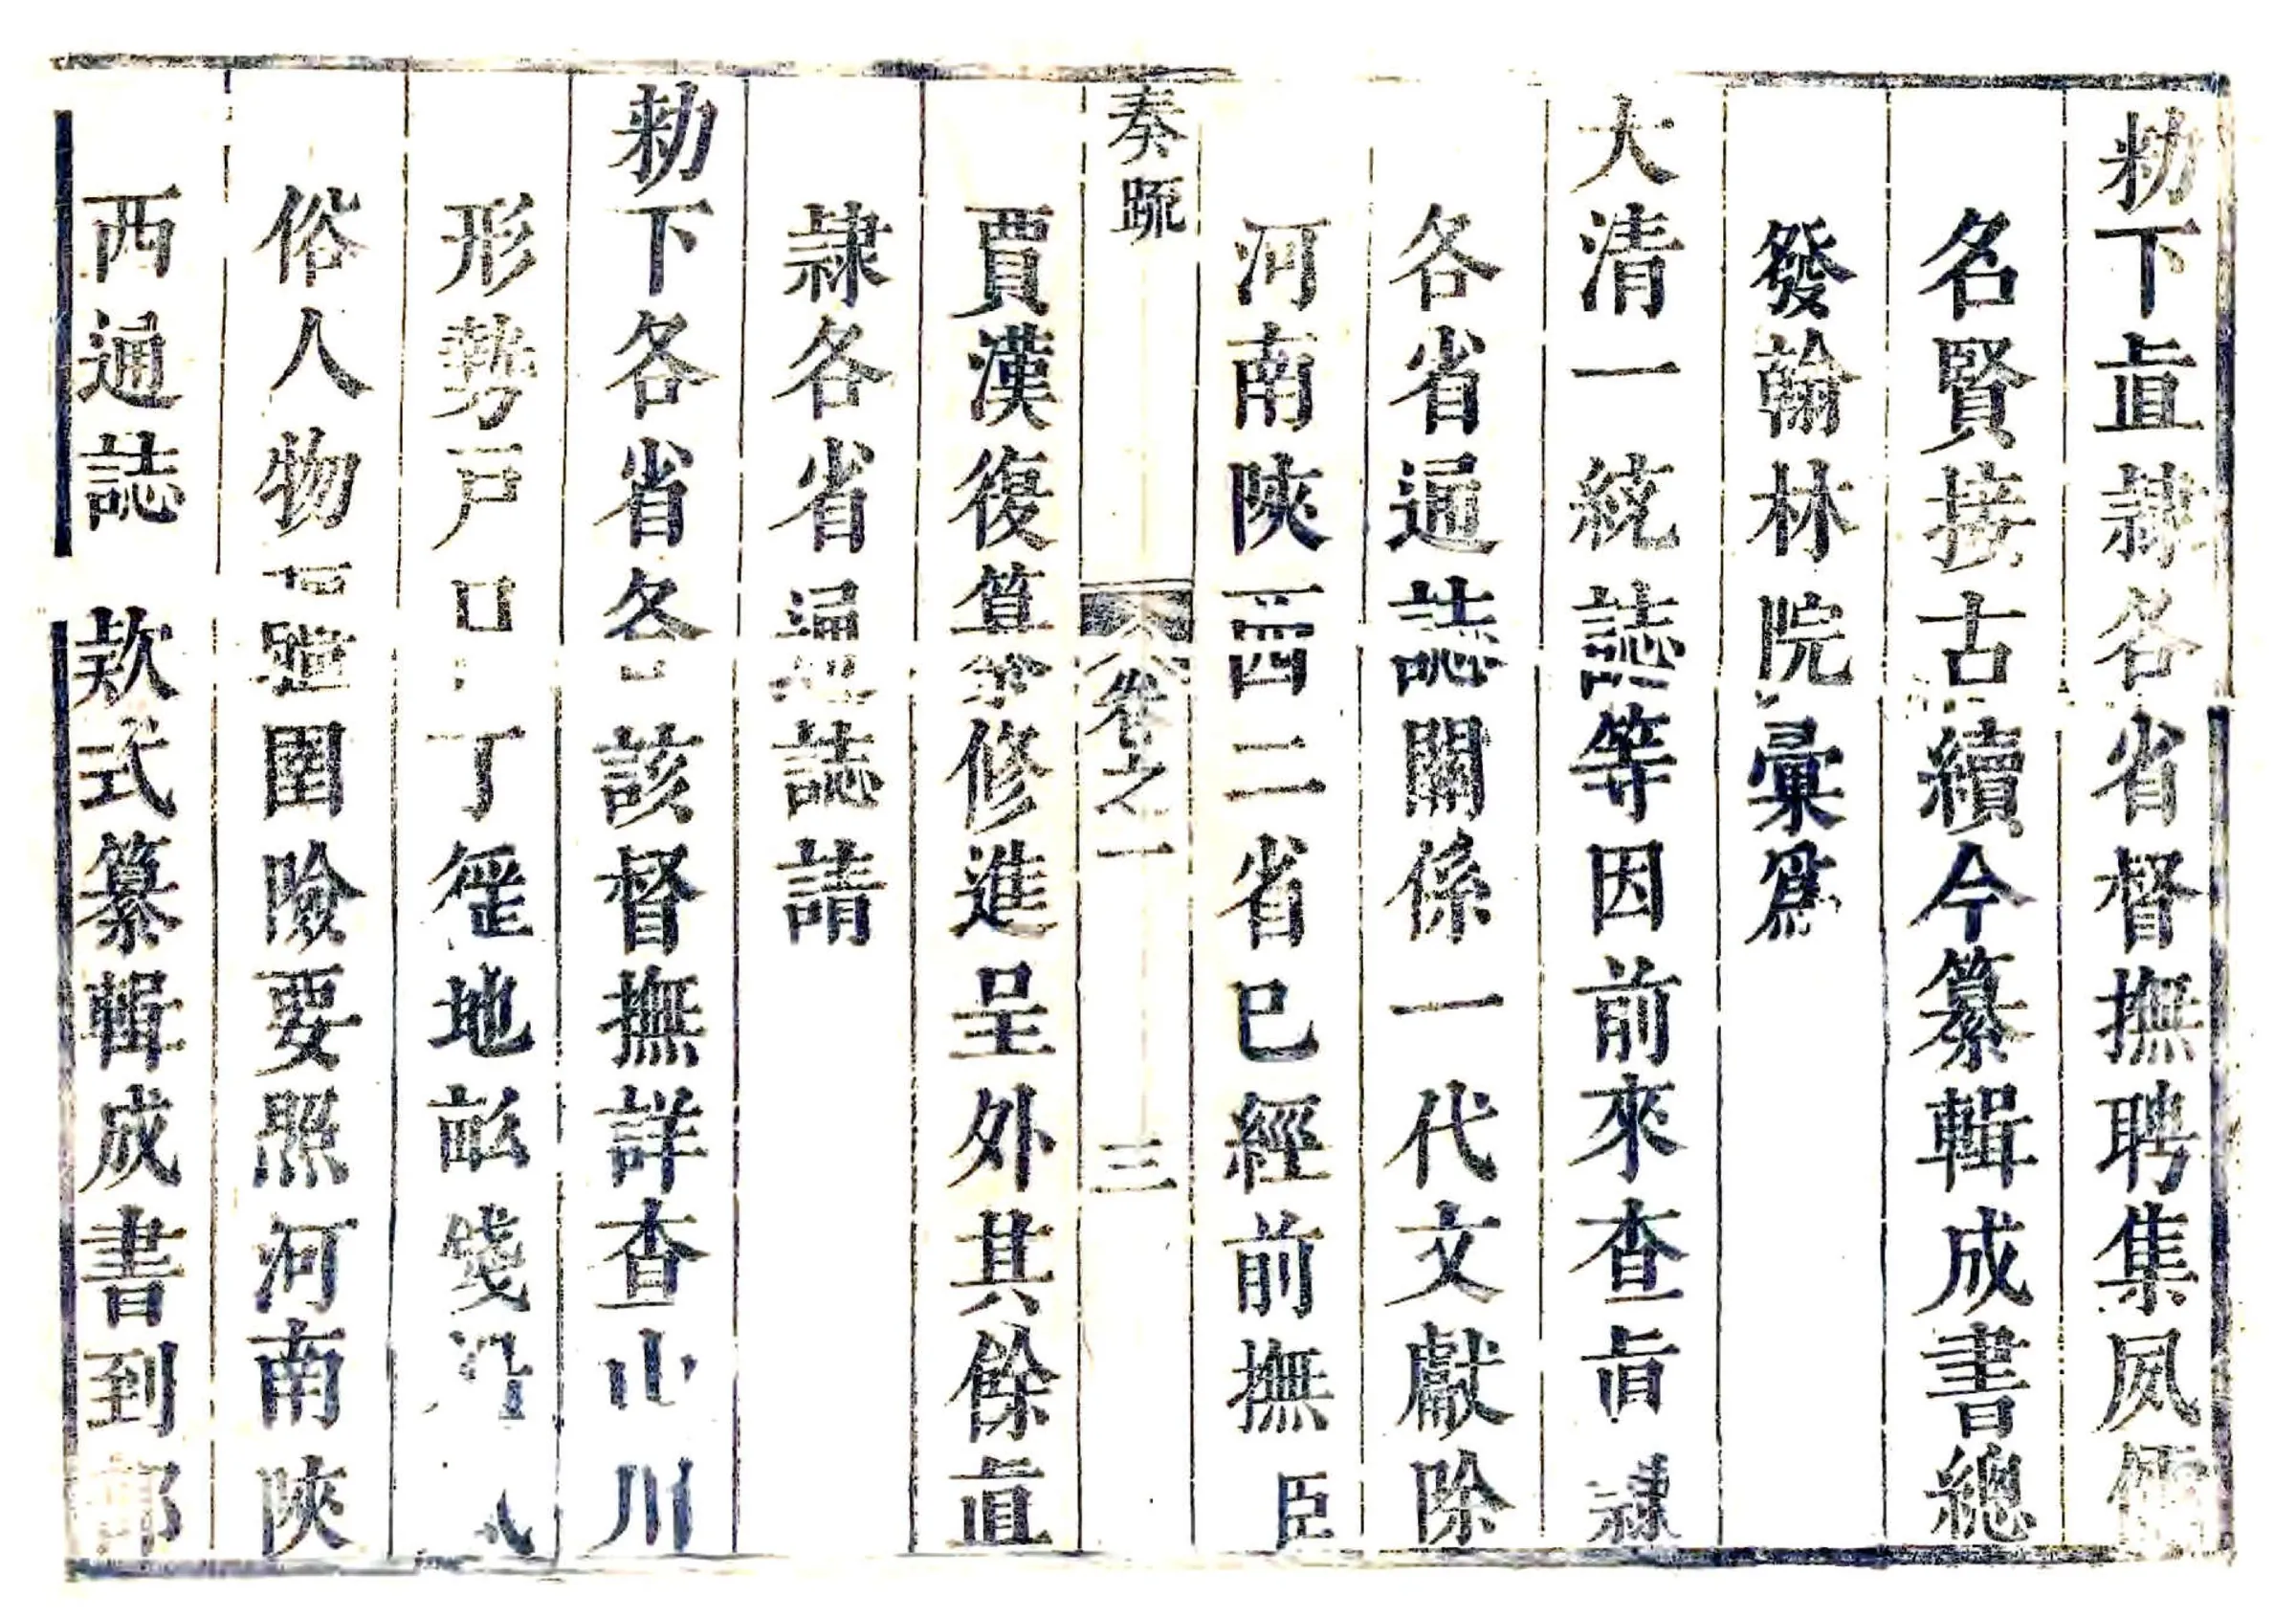 勑下直隷各省督撫聘集夙儒
名賢接古續今纂輯成書總
發翰林院彙爲
大清一統誌等因前來查直隷
各省通誌關係一代文獻除
河南陝西二省已經前撫臣
奏疏 卷之一 三
賈漢復纂修進呈外其餘直
隷各省通誌請
勑下各省各該督撫詳查山川
形勢戸口丁徭地畝錢糧風
俗人物疆圉險要照河南陝
西通誌欵式纂輯成書到部